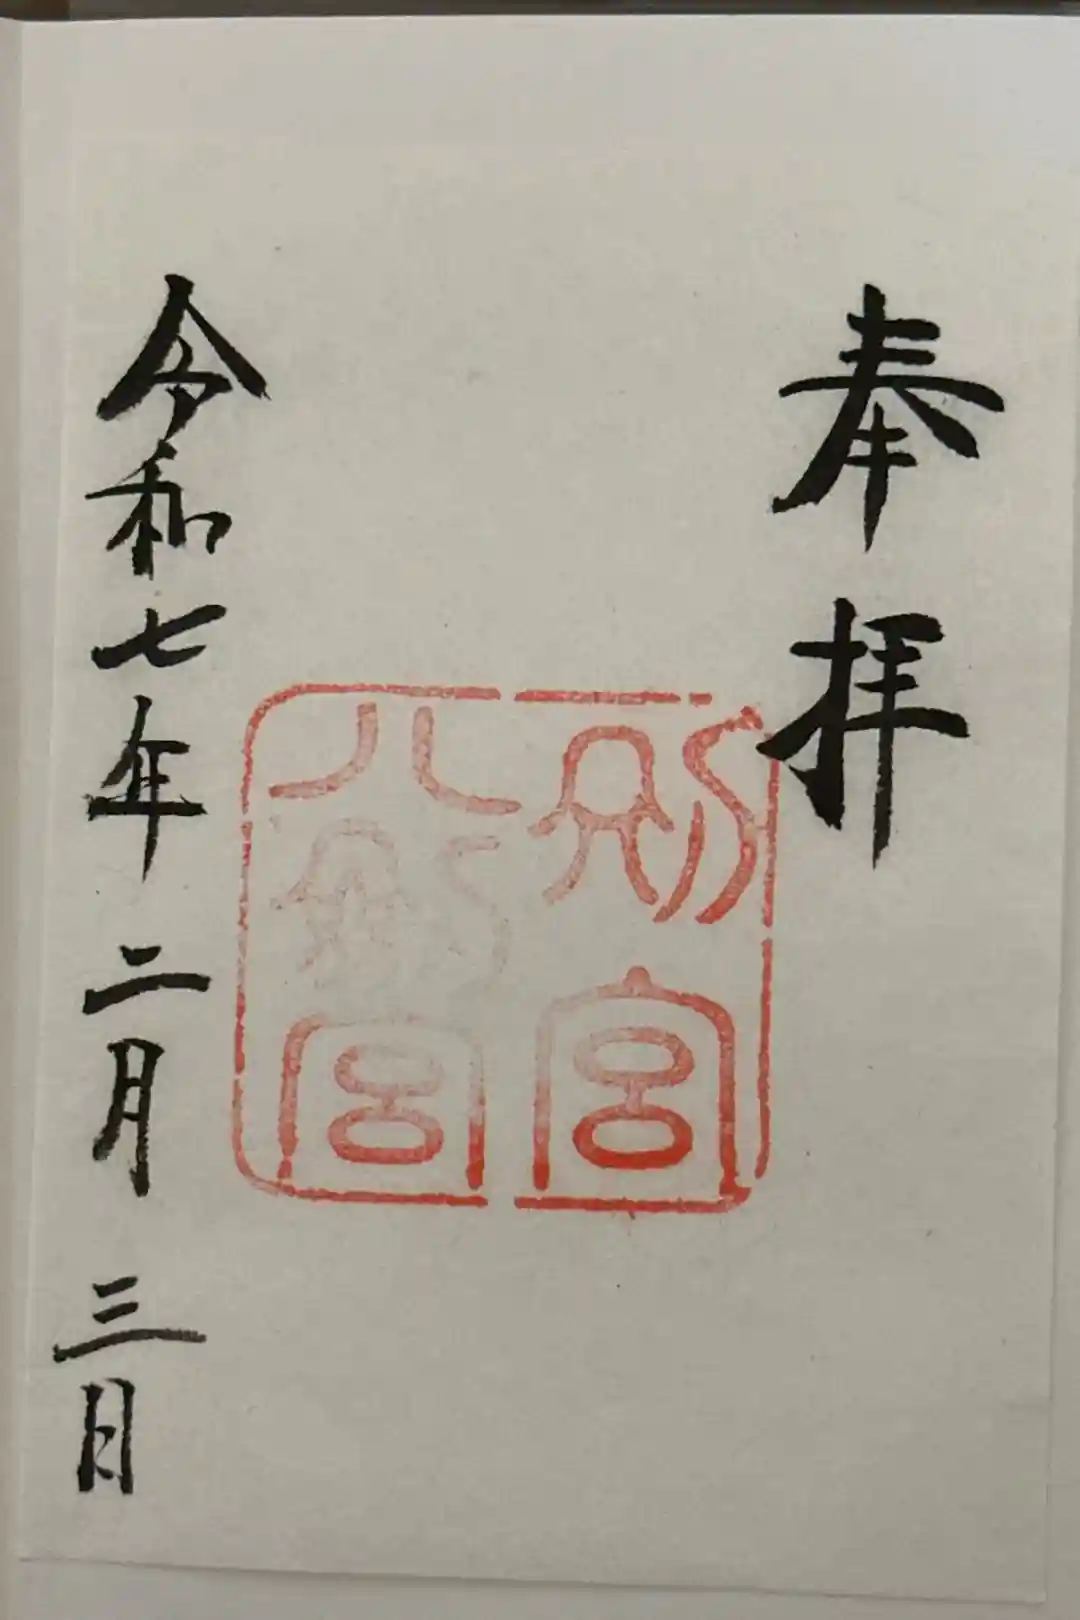 奉拝
別宮
八剣宮
令和七年二月三日